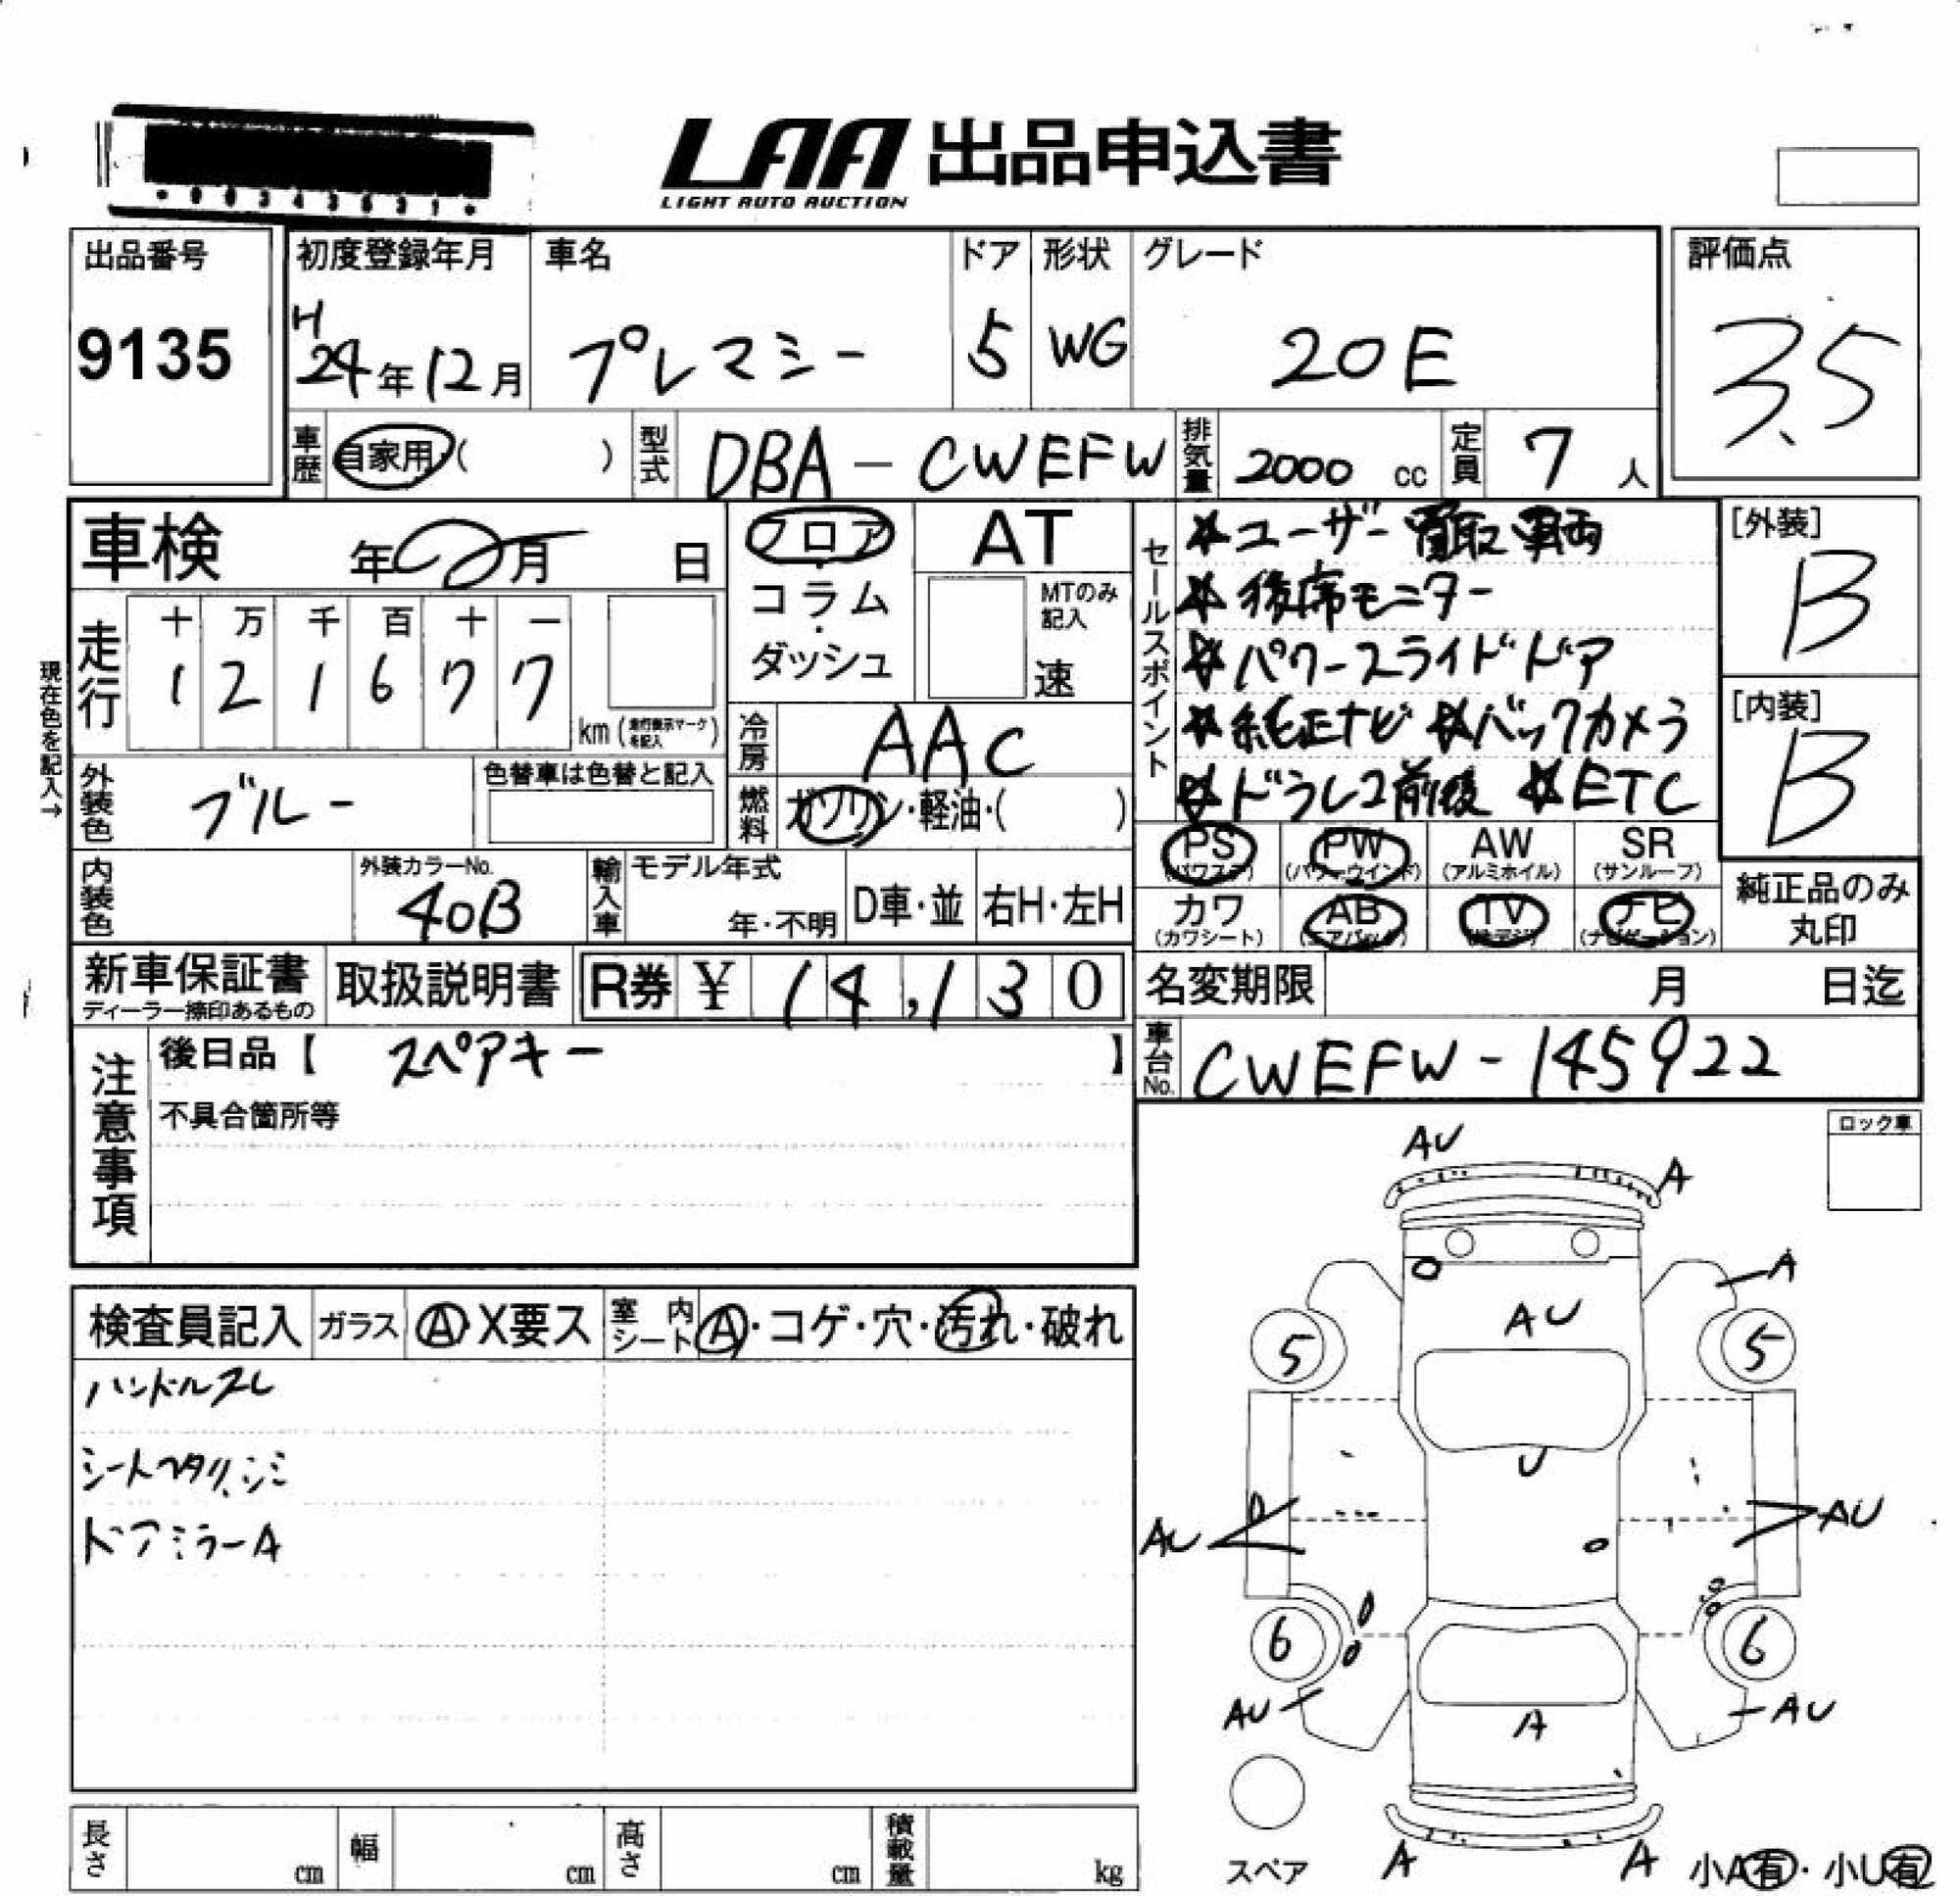 LAA 出品申込書
LIGHT AUTO AUCTION
出品番号
9135
初度登録年月
H24年12月
車名
プレマシー
ドア
5
形状
WG
グレード
20E
評価点
3.5
車歴
自家用 ( )
型式
DBA-CWEFW
排気量
2000 cc
定員
7 人
車検 年 月 日
フロア・コラム・ダッシュ
AT
MTのみ記入
速
セールスポイント
☆ユーザー買取車両
☆後席モニター
☆パワースライドドア
☆純正ナビ ☆バックカメラ
☆ドラレコ前後 ☆ETC
[外装]
B
[内装]
B
現在色を記入→
走行
十 万 千 百 十 一
1 2 1 6 7 7
km (走行表示マークを記入)
冷房
AAC
外装色
ブルー
色替車は色替と記入
燃料
ガソリン・軽油・( )
PS
(パワステ)
PW
(パワーウインド)
AW
(アルミホイル)
SR
(サンルーフ)
カワ
(カワシート)
AB
(エアバック)
TV
(地デジ)
ナビ
(ナビゲーション)
純正品のみ
丸印
内装色
外装カラーNo.
40B
輸入車
モデル年式
年・不明
D車・並
右H・左H
新車保証書
ディーラー捺印あるもの
取扱説明書
R券 ¥ 14,130
名変期限 月 日迄
車台No.
CWEFW-145922
注意事項
後日品【 スペアキー 】
不具合箇所等
ロック車
検査員記入
ガラス
A・X要ス
室内シート
A・コゲ・穴・汚れ・破れ
ハンドルスレ
シートヘタリ、シミ
ドアミラーA
AU
A
A
AU
5
5
U
AU
AU
6
6
AU
AU
A
A
A
スペア
小A有・小U有
長さ
cm
幅
cm
高さ
cm
積載量
kg